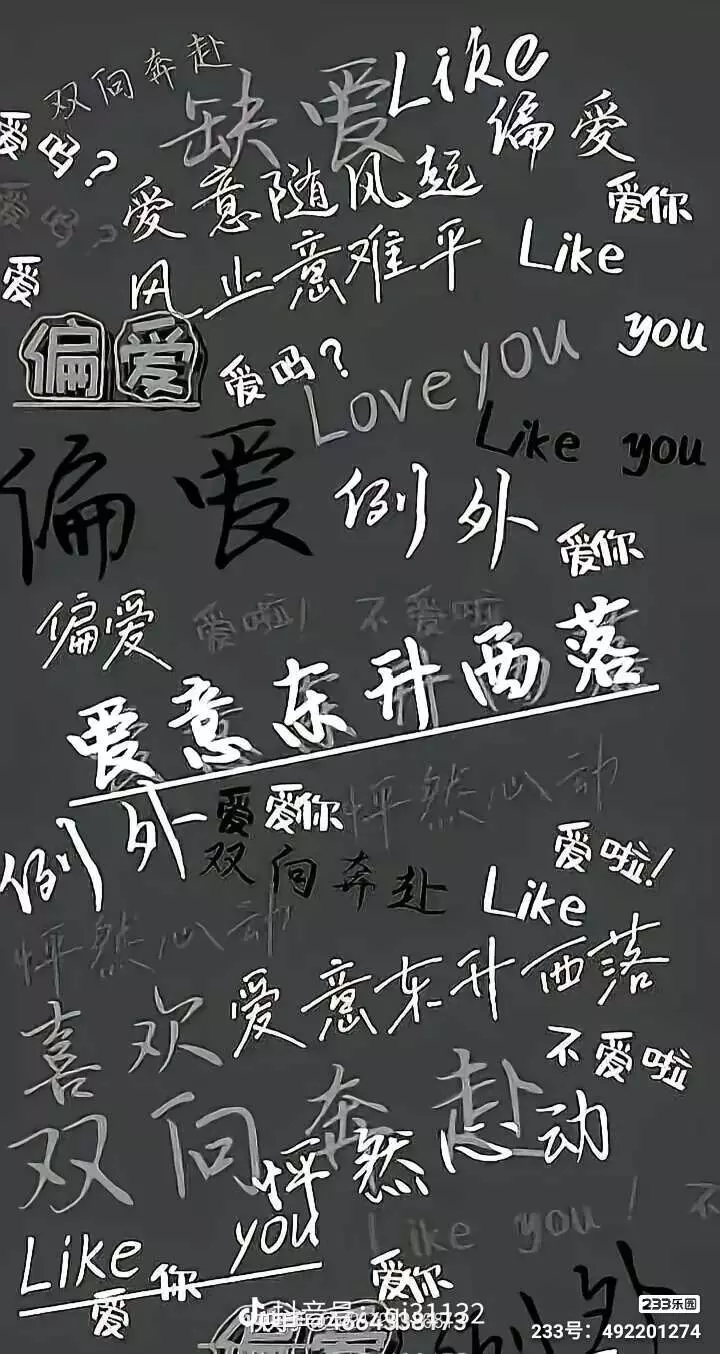 双向奔赴
Like
缺爱
偏爱
爱吗?
爱意随风起
爱你
爱吗?
风止意难平
Like
爱
偏爱
you
爱吗?
Love you
Like you
偏爱
例外
爱你
偏爱
爱啦!
不爱啦
爱意东升西落
怦然心动
例外
爱
爱你
双向奔赴
爱啦!
Like
怦然心动
爱意东升西落
喜欢
不爱啦
双向奔赴
怦然心动
Like you
Like you!
不
爱
你
爱你
例外
233乐园
233号：492201274